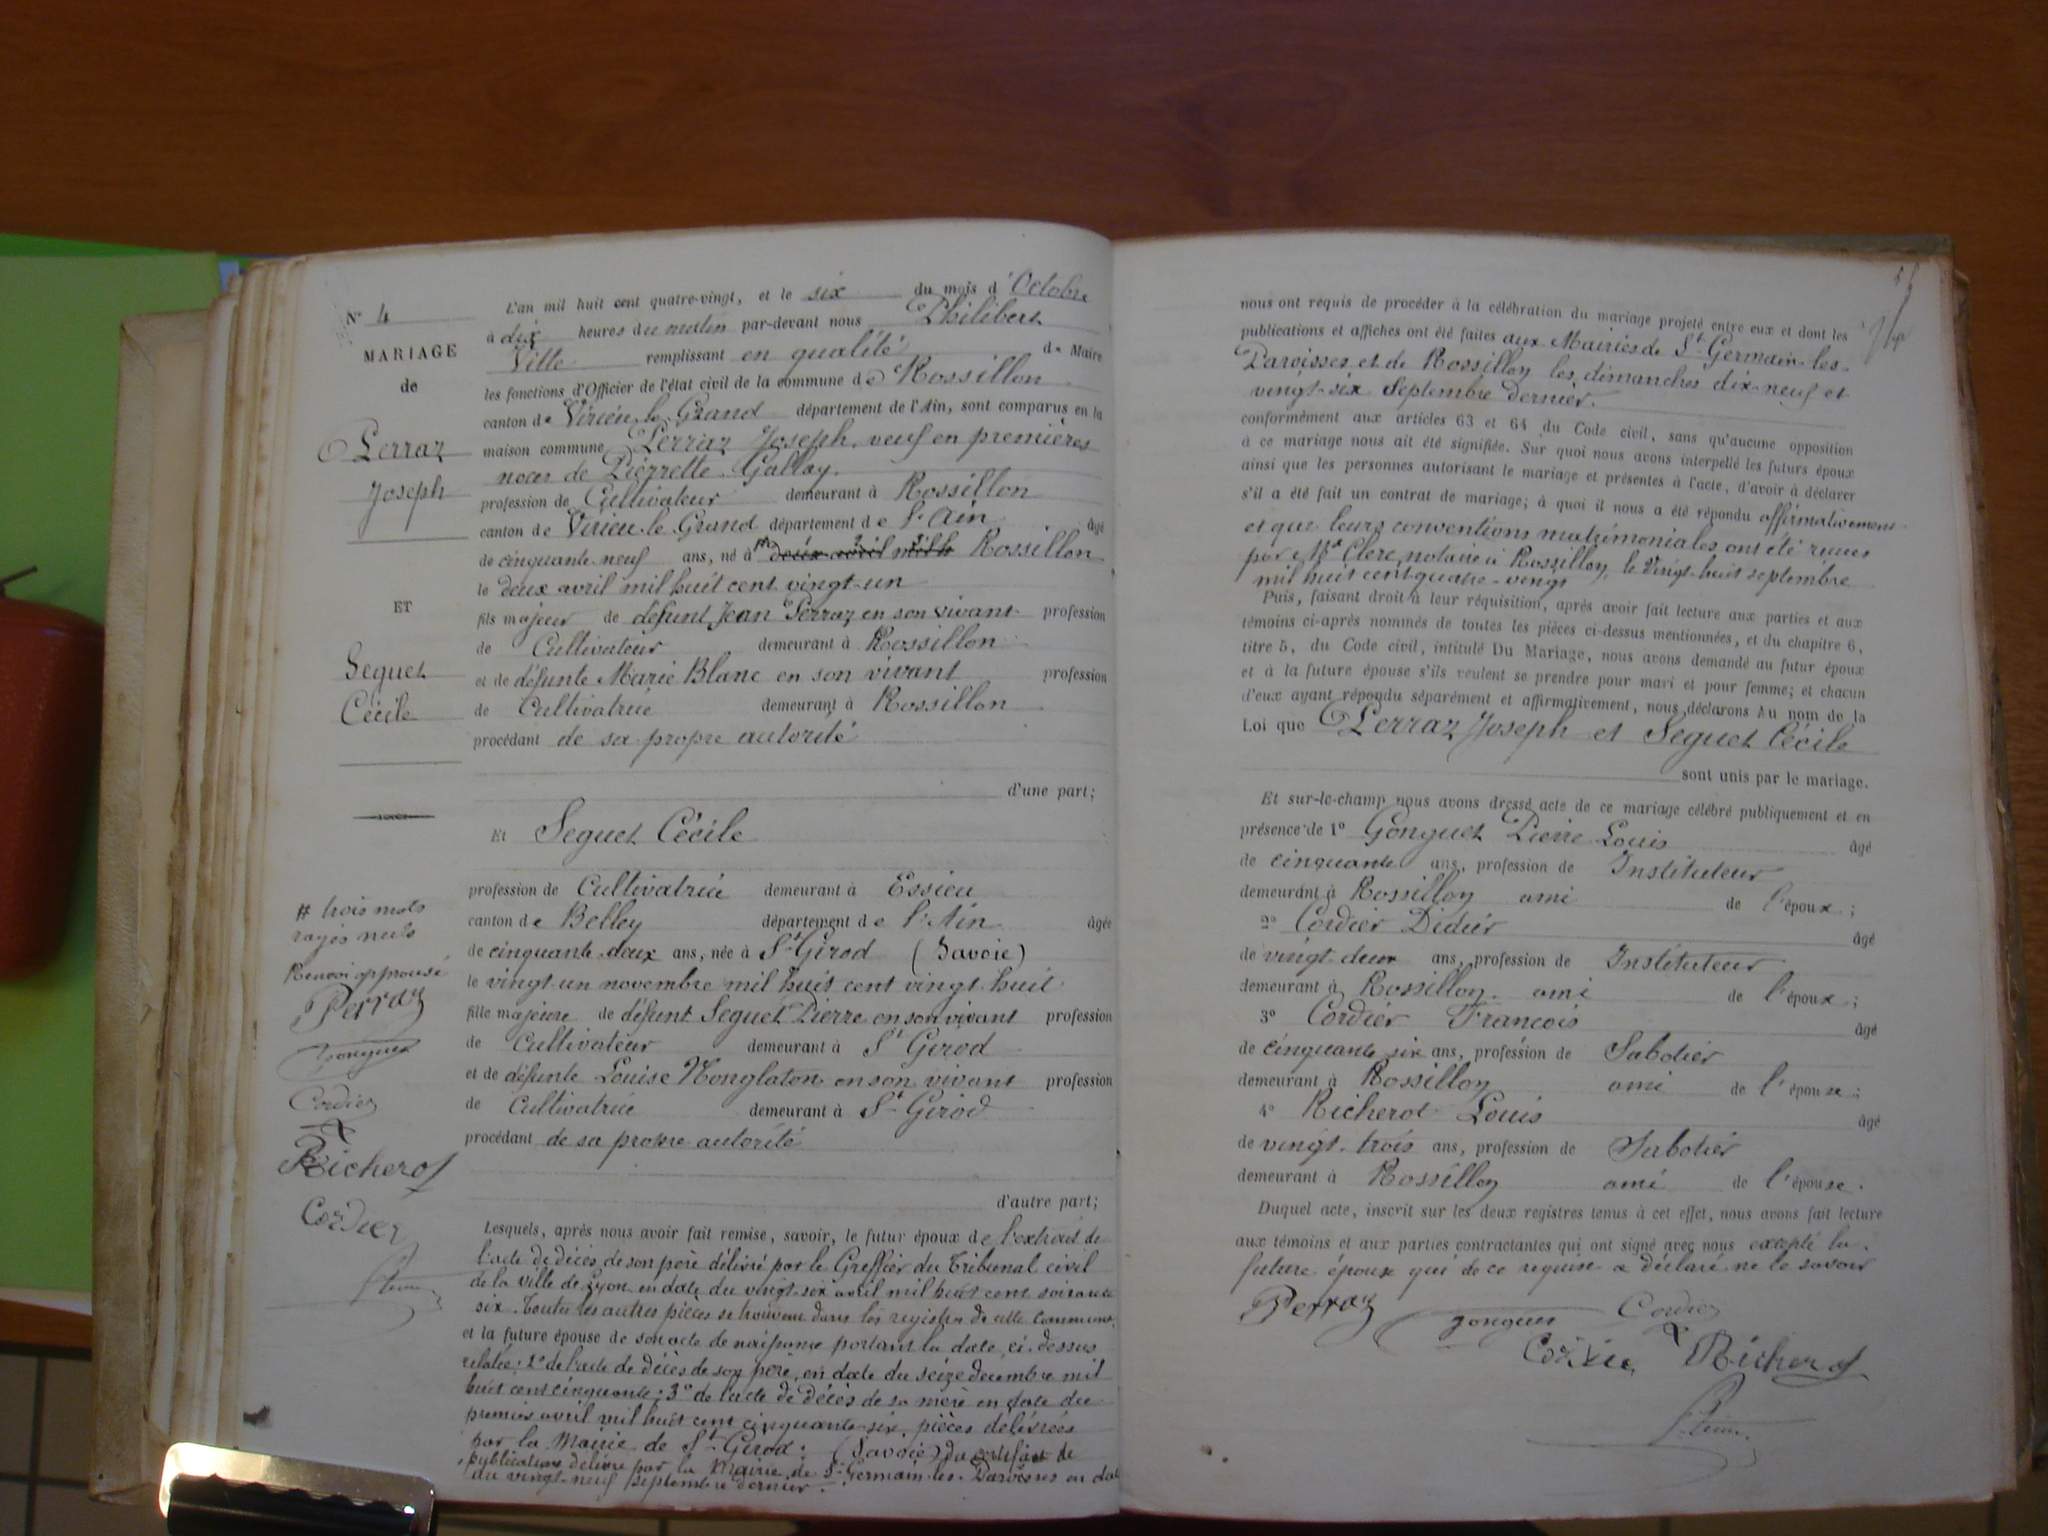 N° 4
MARIAGE
de
Perraz
Joseph
ET
Seguet
Cécile
# trois mots
rayés nuls
Renvoi approuvé
Perraz
Gonguet
Cordier
Richerot
Cordier
L'an mil huit cent quatre-vingt, et le six du mois d'Octobre
à dix heures du matin par-devant nous Philibert
Ville remplissant en qualité de Maire
les fonctions d'Officier de l'état civil de la commune de Rossillon
canton de Virieu-le-Grand département de l'Ain, sont comparus en la
maison commune Perraz Joseph, veuf en premières
noces de Pierrette Gallay.
profession de Cultivateur demeurant à Rossillon
canton de Virieu-le-Grand département de l'Ain âgé
de cinquante-neuf ans, né à # deux avril mil h Rossillon
le deux avril mil huit cent vingt-un
fils majeur de défunt Jean Perraz en son vivant profession
de Cultivateur demeurant à Rossillon
et de défunte Marie Blanc en son vivant profession
de Cultivatrice demeurant à Rossillon
procédant de sa propre autorité
d'une part;
Et Seguet Cécile
profession de Cultivatrice demeurant à Essieu
canton de Belley département de l'Ain âgée
de cinquante-deux ans, née à St Girod (Savoie)
le vingt-un novembre mil huit cent vingt-huit
fille majeure de défunt Seguet Pierre en son vivant profession
de Cultivateur demeurant à St Girod
et de défunte Louise Monglaton en son vivant profession
de Cultivatrice demeurant à St Girod
procédant de sa propre autorité
d'autre part;
Lesquels, après nous avoir fait remise, savoir, le futur époux de l'extrait de
l'acte de décès de son père délivré par le Greffier du Tribunal civil
de la ville de Lyon en date du vingt-six avril mil huit cent soixante
six. Toutes les autres pièces se trouvent dans les registres de cette commune.
et la future épouse de son acte de naissance portant la date ci-dessus
relatée; 2° de l'acte de décès de son père, en date du seize decembre mil
huit cent cinquante; 3° de l'acte de décès de sa mère en date du
premier avril mil huit cent cinquante-six, pièces délivrées
par la Mairie de St Girod: (Savoie) du certificat de
publications délivré par la Mairie de St Germain-les-Paroisses en date
du vingt-neuf septembre dernier.
nous ont requis de procéder à la célébration du mariage projeté entre eux et dont les
publications et affiches ont été faites aux Mairies de St Germain-les-
Paroisses et de Rossillon les dimanches dix-neuf et
vingt-six Septembre dernier.
conformément aux articles 63 et 64 du Code civil, sans qu'aucune opposition
à ce mariage nous ait été signifiée. Sur quoi nous avons interpellé les futurs époux
ainsi que les personnes autorisant le mariage et présentes à l'acte, d'avoir à déclarer
s'il a été fait un contrat de mariage; à quoi il nous a été répondu affirmativement
et que leurs conventions matrimoniales ont été reçues
par Me Clerc, notaire à Rossillon, le vingt-huit septembre
mil huit cent quatre-vingt
Puis, faisant droit à leur réquisition, après avoir fait lecture aux parties et aux
témoins ci-après nommés de toutes les pièces ci-dessus mentionnées, et du chapitre 6,
titre 5, du Code civil, intitulé Du Mariage, nous avons demandé au futur époux
et à la future épouse s'ils veulent se prendre pour mari et pour femme; et chacun
d'eux ayant répondu séparément et affirmativement, nous déclarons au nom de la
Loi que Perraz Joseph et Seguet Cécile
sont unis par le mariage.
Et sur-le-champ nous avons dressé acte de ce mariage célébré publiquement et en
présence de 1° Gonguet Pierre Louis âgé
de cinquante ans, profession de Instituteur
demeurant à Rossillon ami de l'époux;
2° Cordier Didier âgé
de vingt-deux ans, profession de Instituteur
demeurant à Rossillon ami de l'époux;
3° Cordier François âgé
de cinquante six ans, profession de Sabotier
demeurant à Rossillon ami de l'épouse;
4° Richerot Louis âgé
de vingt-trois ans, profession de Sabotier
demeurant à Rossillon ami de l'épouse.
Duquel acte, inscrit sur les deux registres tenus à cet effet, nous avons fait lecture
aux témoins et aux parties contractantes qui ont signé avec nous excepté la
future épouse qui de ce requise a déclaré ne le savoir
Perraz Gonguet Cordier
Cordier Richerot